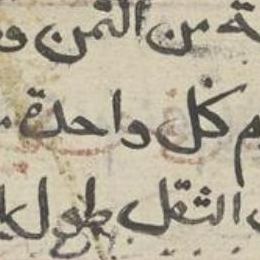 ة من الثمن و
م كل واحدة
الثقل طول